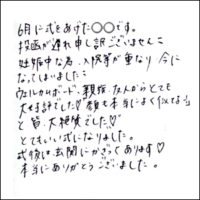 6月に式をあげた○○です。
投函が遅れ申し訳ございません
妊娠中な為、入院等が重なり 今に
なってしまいました
ウェルカムボード、親族、友人からとても
大好評でした♡ 顔も本当によく似てる
と 皆、大絶賛でした♡
とてもいい式になりました。
式後は、玄関にかざってあります♡
本当にありがとうございました。